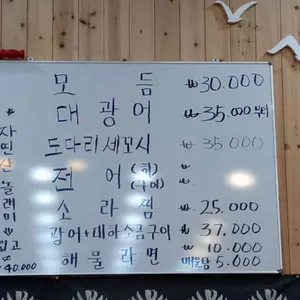 모듬 ₩30.000
대광어 ₩35.000부터
도다리세꼬시 ₩35.000
전어(회) ₩
(구이) ₩
소라찜 ₩25.000
광어+대하소금구이 ₩37.000
해물라면 ₩10.000
매운탕 5.000
자
띤
산
놀
래
미
입고
₩40.000